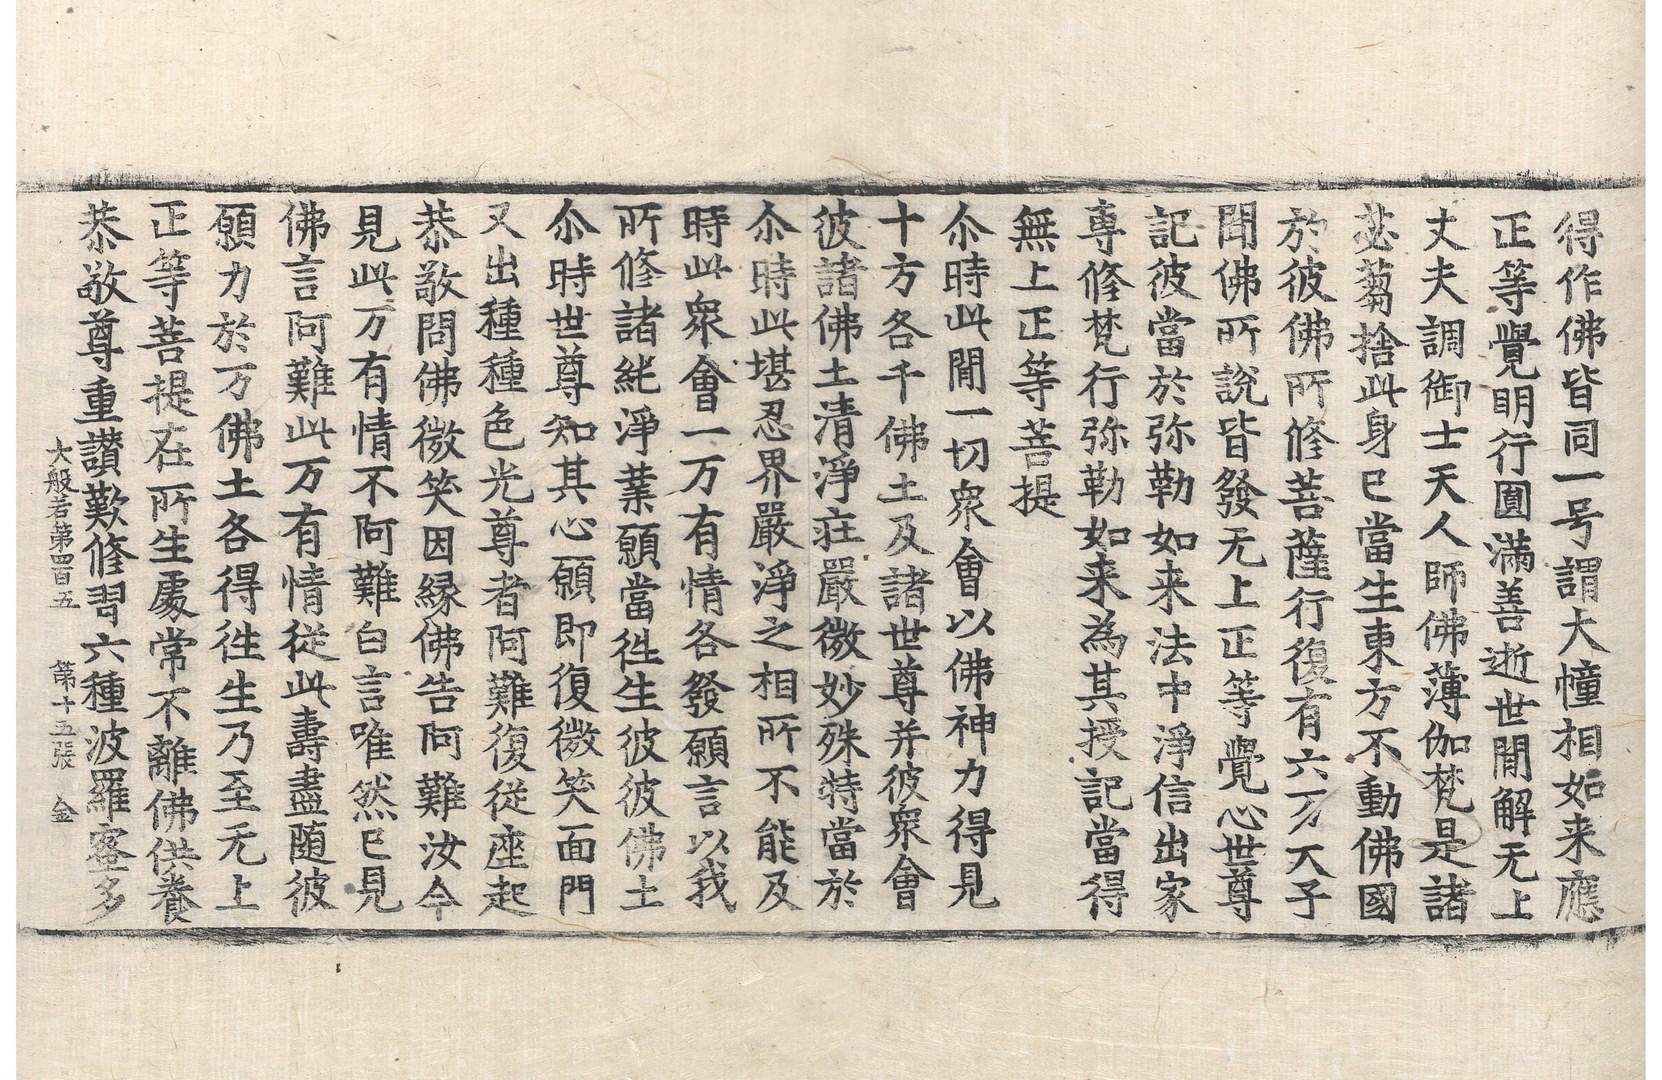 得作佛皆同一号謂大幢相如来應
正等覺明行圓滿善逝世間解无上
丈夫調御士天人師佛薄伽梵是諸
苾蒭捨此身已當生東方不動佛國
於彼佛所修菩薩行復有六万天子
聞佛所說皆發无上正等覺心世尊
記彼當於弥勒如来法中淨信出家
專修梵行弥勒如来為其授記當得
無上正等菩提
尒時此間一切衆會以佛神力得見
十方各千佛土及諸世尊并彼衆會
彼諸佛土清淨莊嚴微妙殊特當於
尒時此堪忍界嚴淨之相所不能及
時此衆會一万有情各發願言以我
所修諸純淨業願當徃生彼彼佛土
尒時世尊知其心願即復微笑面門
又出種種色光尊者阿難復從座起
恭敬問佛微笑因緣佛告阿難汝今
見此万有情不阿難白言唯然已見
佛言阿難此万有情從此壽盡随彼
願力於万佛土各得徃生乃至无上
正等菩提在所生處常不離佛供養
恭敬尊重讃歎修習六種波羅蜜多
大般若第四百五　第十五張　金